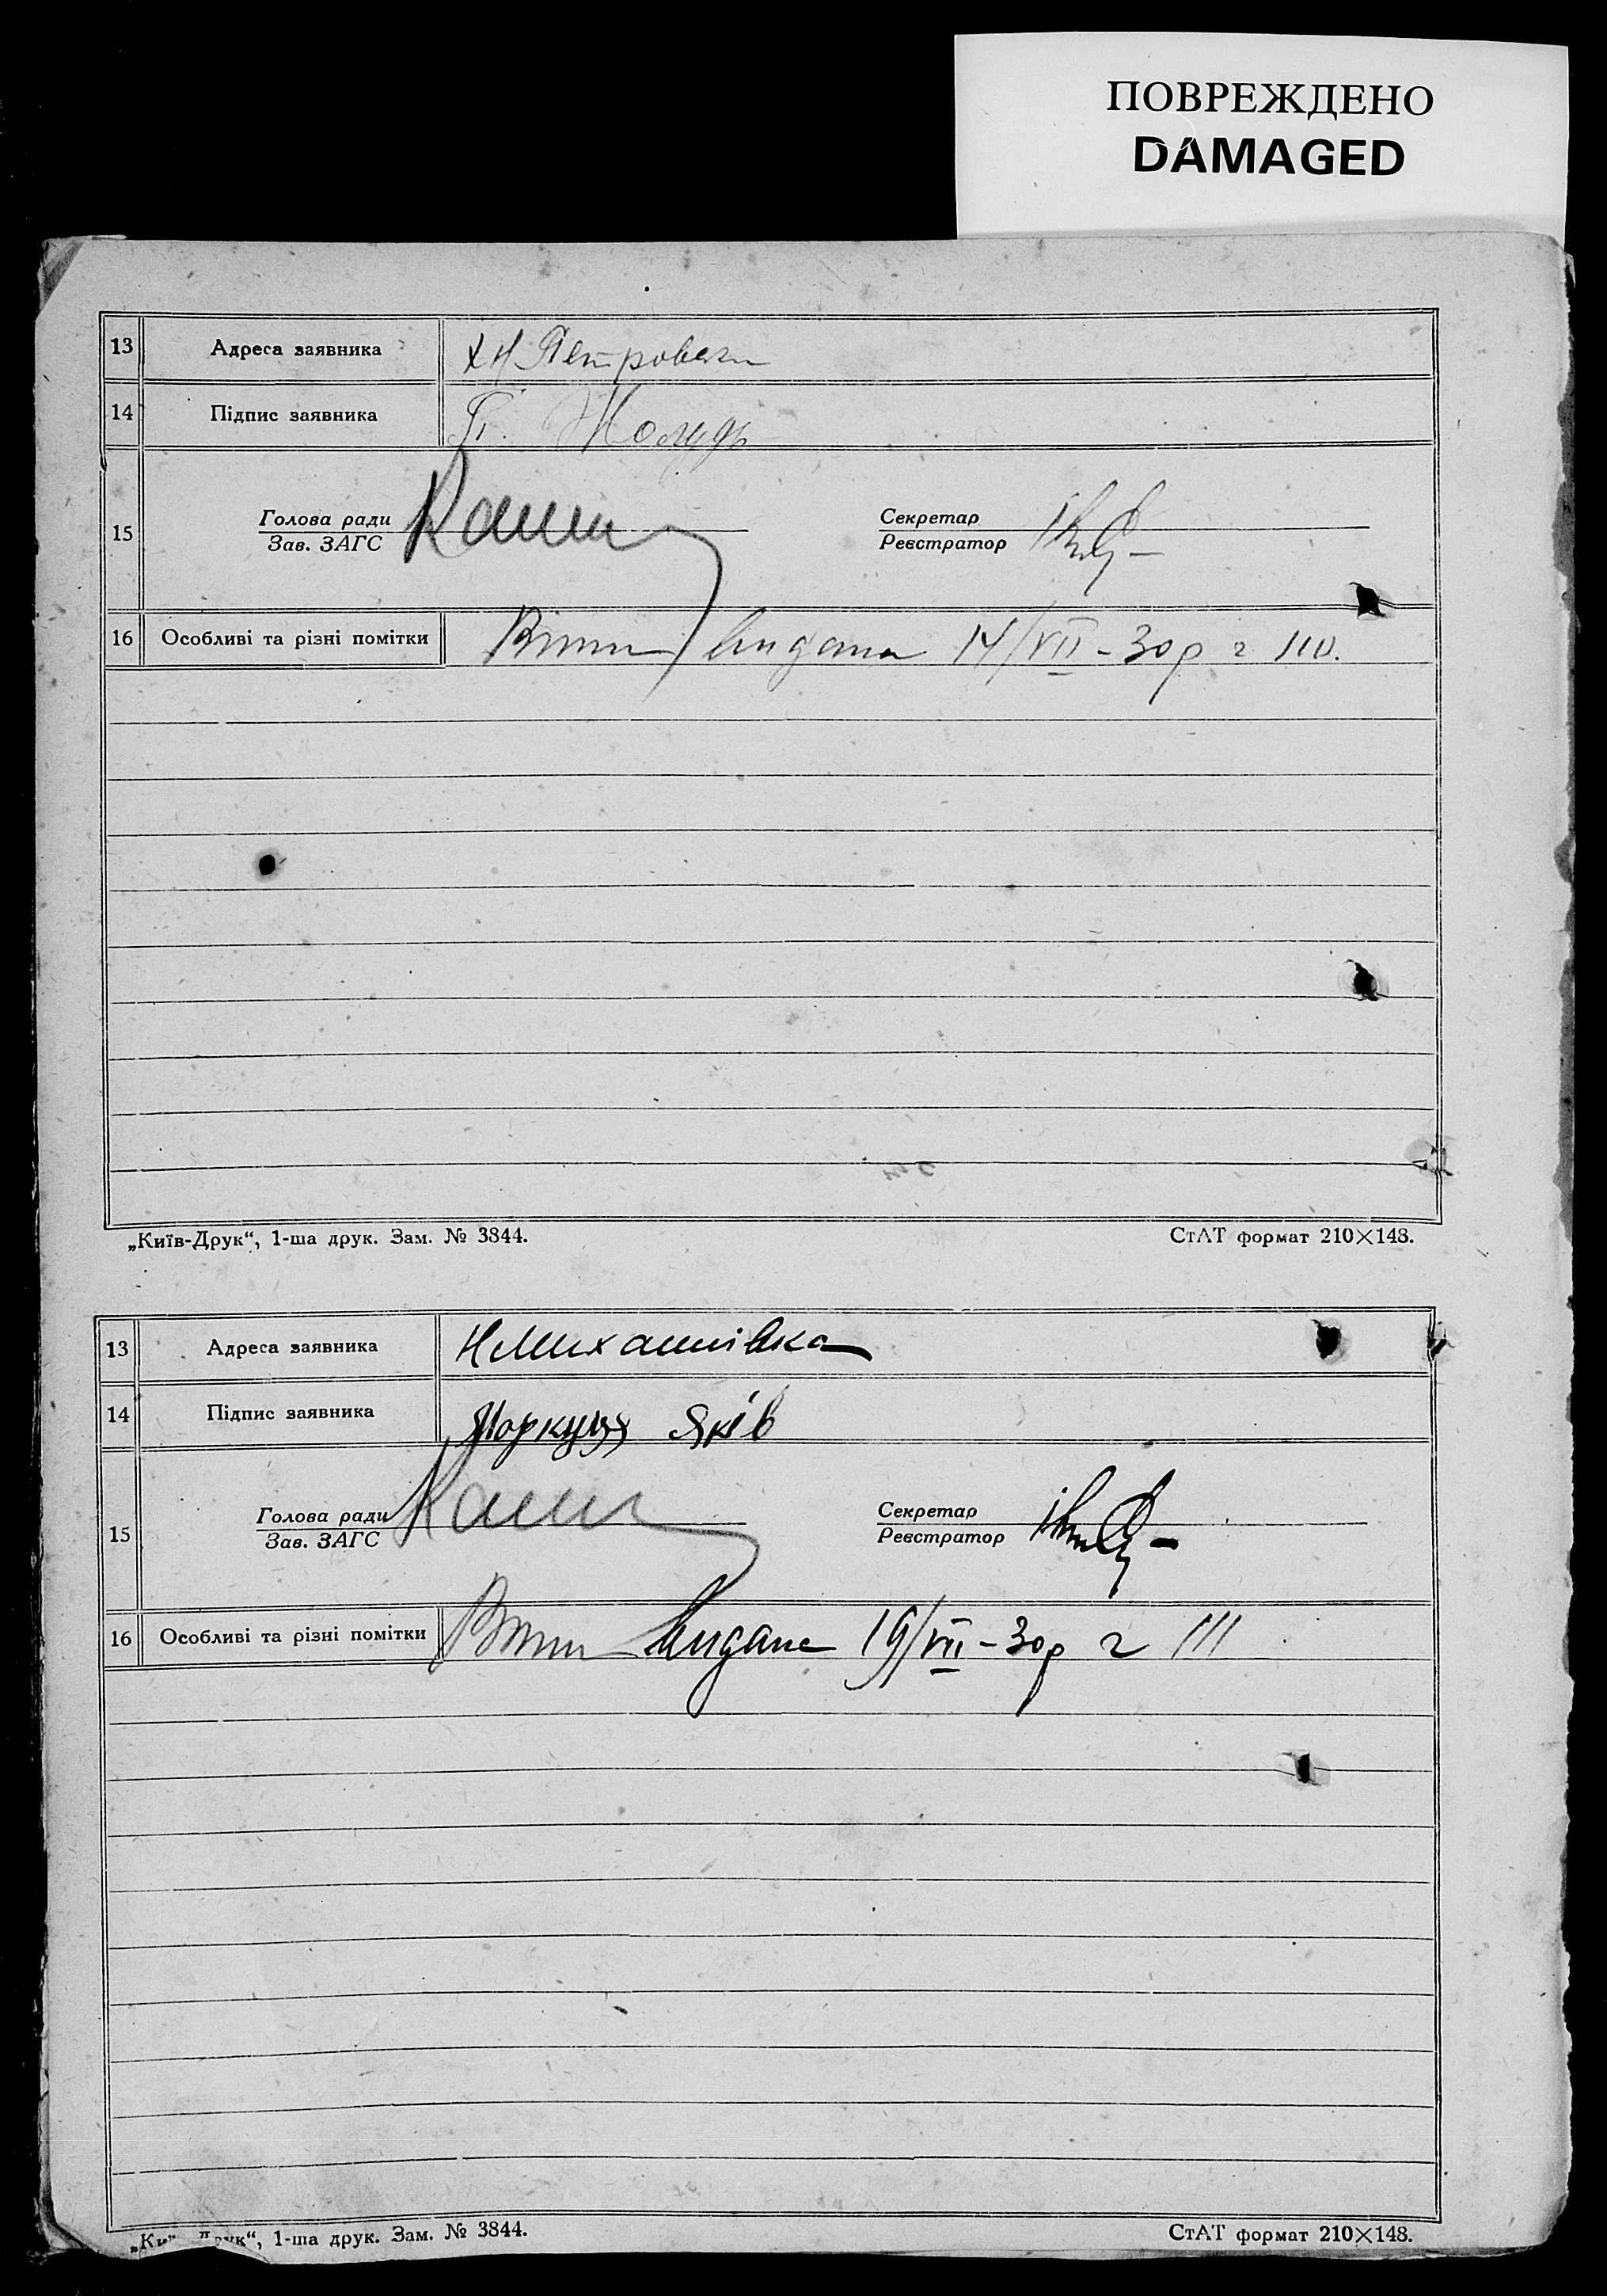 ПОВРЕЖДЕНО
DAMAGED
13 Адреса заявника
14 Підпис заявника П. Жолудь
15 Голова ради Секретар
Зав. ЗАГС Реєстратор
16 Особливі та різні помітки видана 14/VII-30р
„Київ-Друк“, 1-ша друк. Зам. № 3844. СтАТ формат 210×148.
13 Адреса заявника Н Михайлівка
14 Підпис заявника Яків
15 Голова ради Секретар
Зав. ЗАГС Реєстратор
16 Особливі та різні помітки видана 19/VII-30р г 111
1-ша друк. Зам. № 3844. СтАТ формат 210×148.